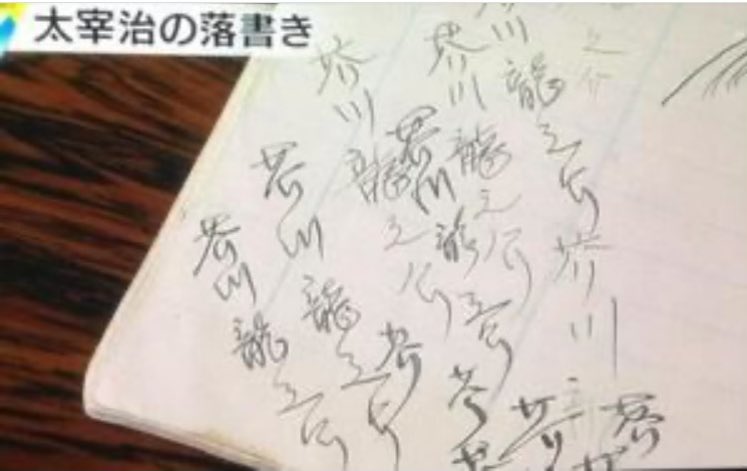 太宰治の落書き
之介
川龍之介
芥川
芥川龍之介
芥川龍之介
芥川龍之介
芥川龍之介
芥川龍之介
芥
芥